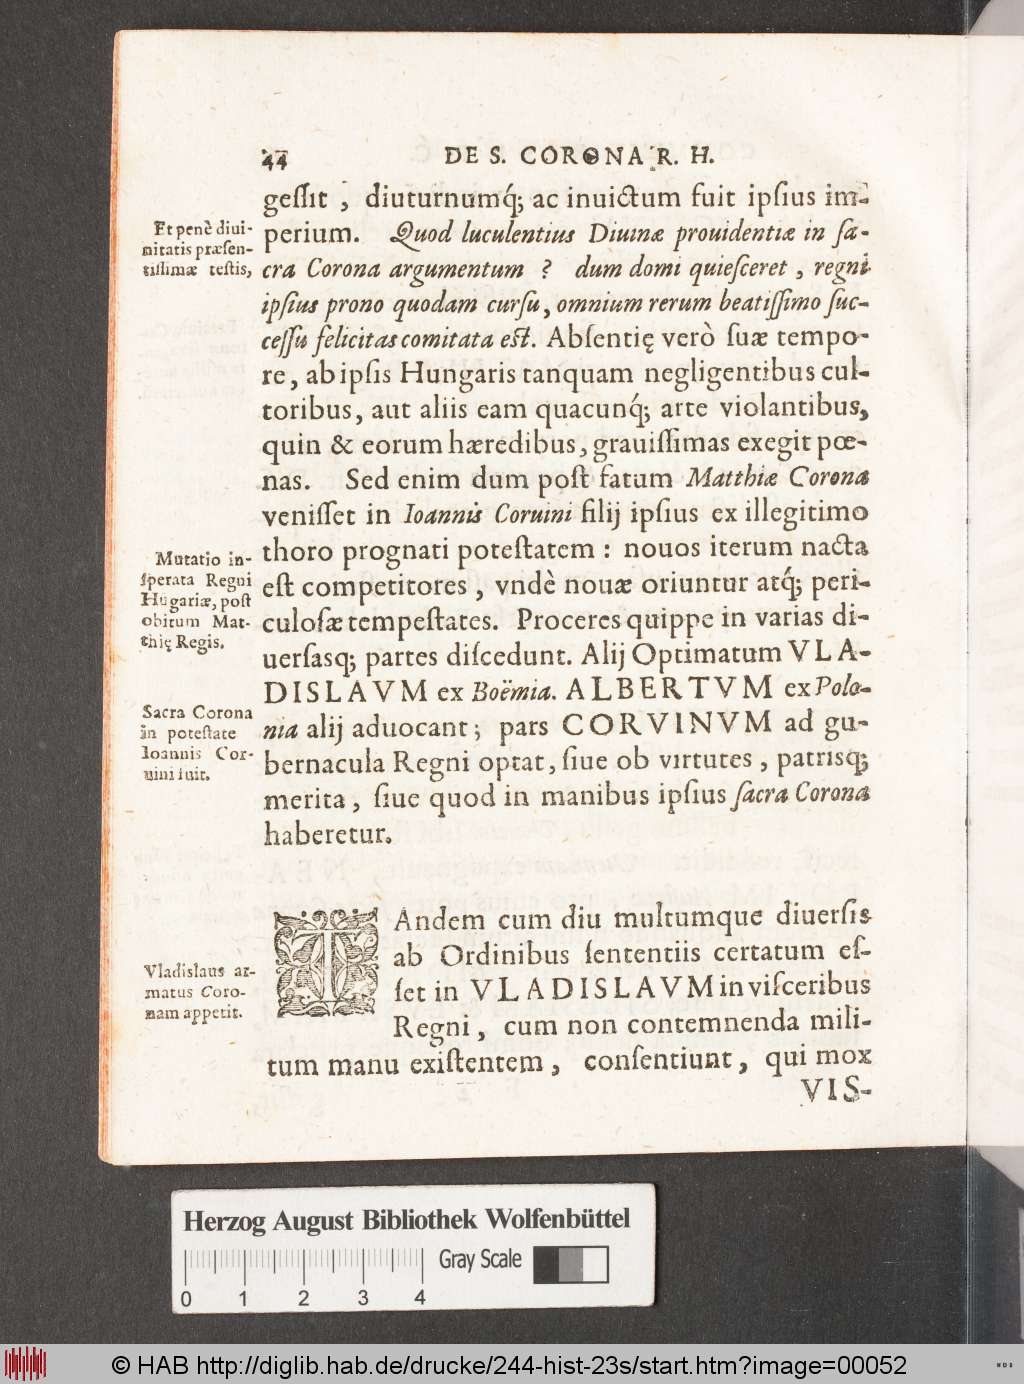 44 DE S. CORONA R. H.
geſſit, diuturnumq́; ac inuictum fuit ipſius im-
perium. Quod luculentius Diuinæ prouidentiæ in ſa-
cra Corona argumentum ? dum domi quieſceret, regni
ipſius prono quodam curſu, omnium rerum beatiſſimo ſuc-
ceſſu felicitas comitata eſt. Abſentię verò ſuæ tempo-
re, ab ipſis Hungaris tanquam negligentibus cul-
toribus, aut aliis eam quacunq́; arte violantibus,
quin & eorum hæredibus, grauiſſimas exegit pœ-
nas. Sed enim dum poſt fatum Matthiæ Corona
veniſſet in Ioannis Coruini filij ipſius ex illegitimo
thoro prognati poteſtatem : nouos iterum nacta
eſt competitores, vndè nouæ oriuntur atq́; peri-
culoſæ tempeſtates. Proceres quippe in varias di-
uerſasq; partes diſcedunt. Alij Optimatum VLA-
DISLAVM ex Boëmia. ALBERTVM ex Polo-
nia alij aduocant; pars CORVINVM ad gu-
bernacula Regni optat, ſiue ob virtutes, patrisq;
merita, ſiue quod in manibus ipſius ſacra Corona
haberetur.
Et penè diui-
nitatis præſen-
tiſſimæ teſtis,
Mutatio in-
ſperata Regni
Hūgariæ, poſt
obitum Mat-
thię Regis.
Sacra Corona
in poteſtate
Ioannis Cor-
uini fuit.
TAndem cum diu multumque diuerſis
ab Ordinibus ſententiis certatum eſ-
ſet in VLADISLAVM in viſceribus
Regni, cum non contemnenda mili-
tum manu exiſtentem, conſentiunt, qui mox
VIS-
Vladislaus ar-
matus Coro-
nam appetit.
Herzog August Bibliothek Wolfenbüttel
Gray Scale
0 1 2 3 4
© HAB http://diglib.hab.de/drucke/244-hist-23s/start.htm?image=00052